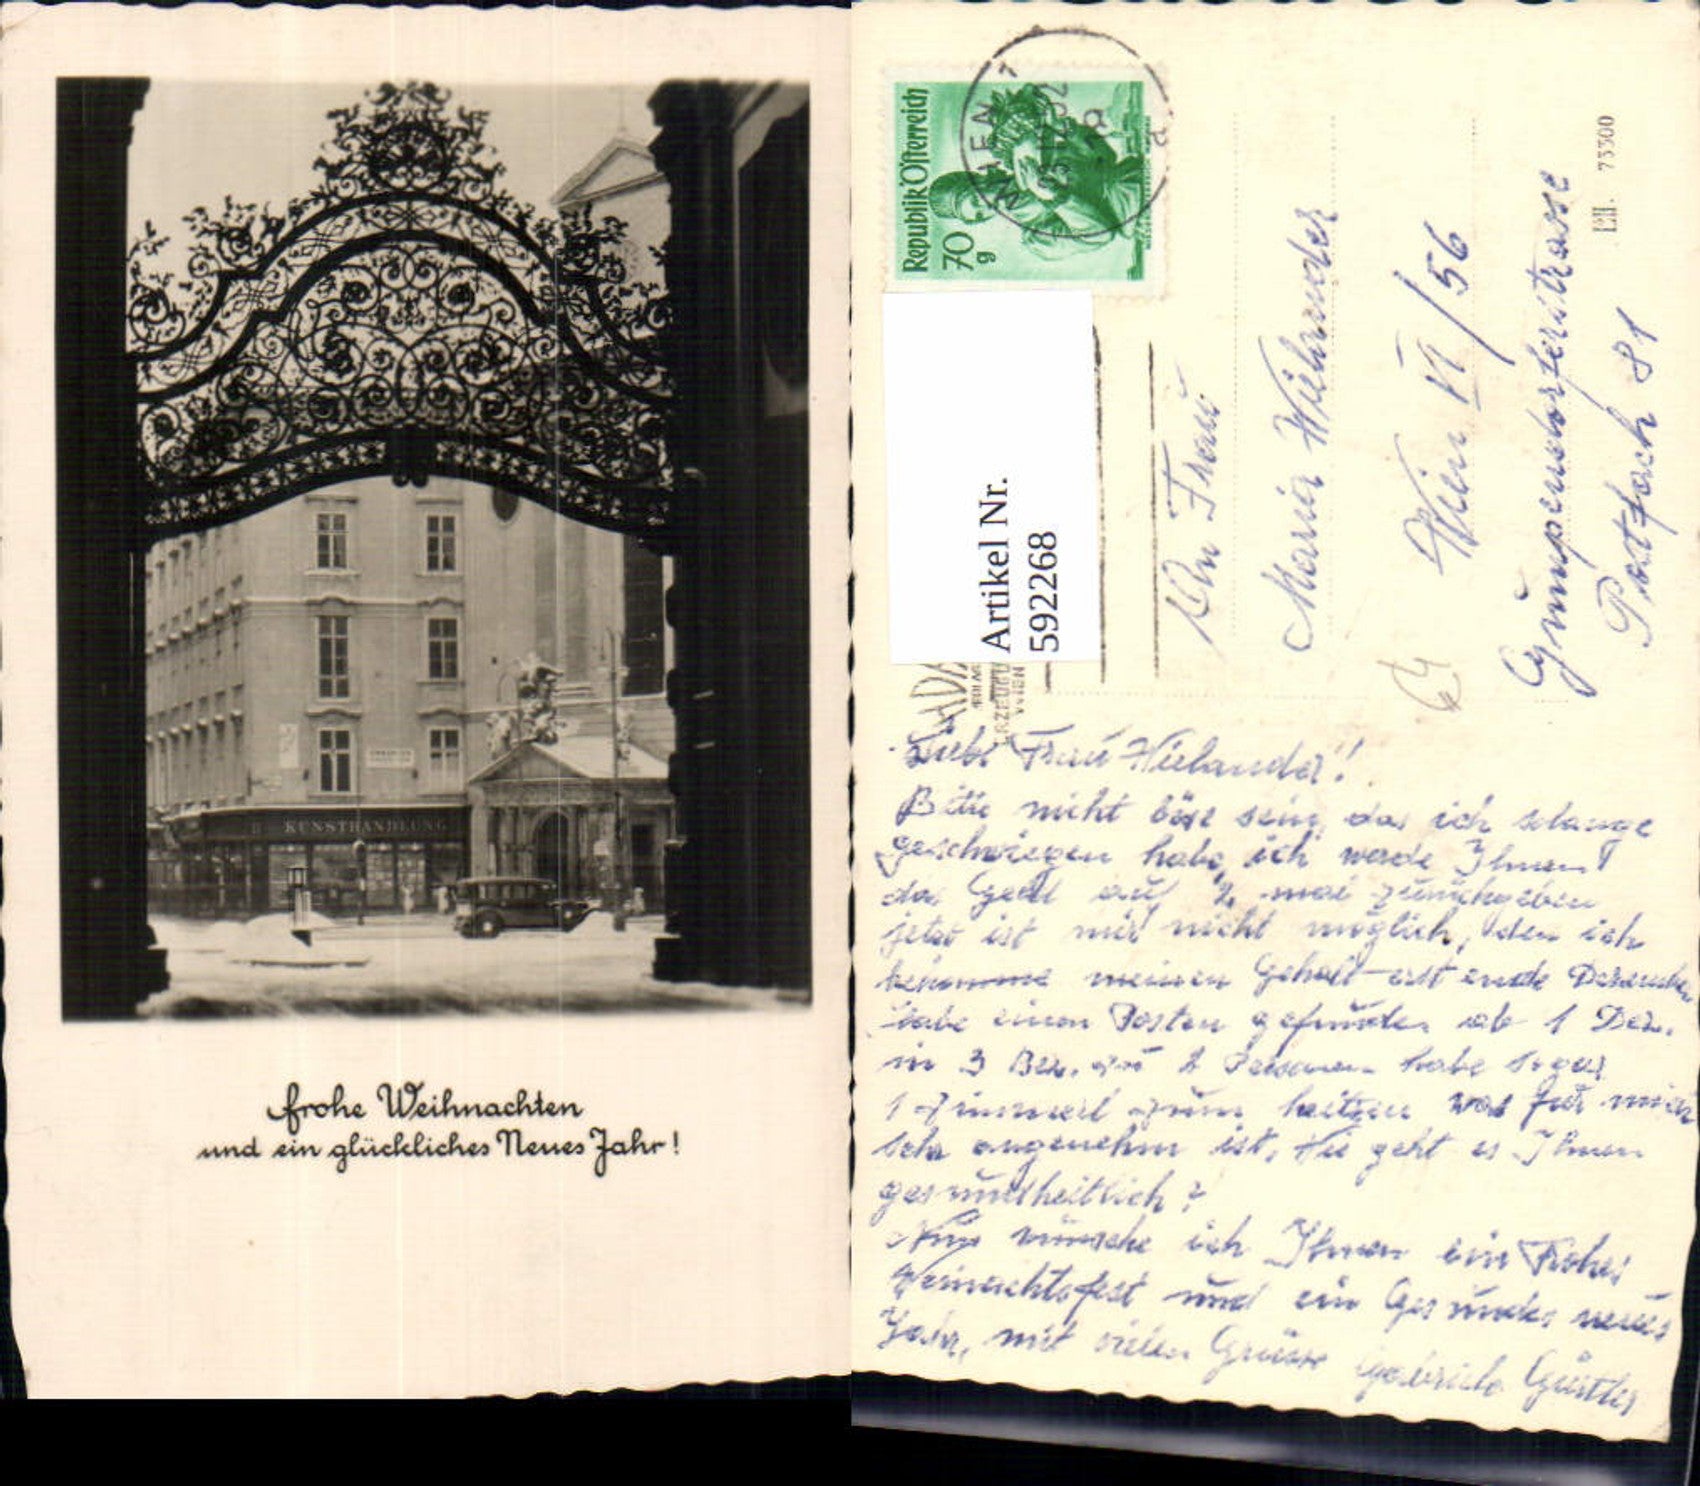 KUNSTHANDLUNG
Frohe Weihnachten
und ein glückliches Neues Jahr!
Republik Österreich
70
g
WIEN 1
Artikel Nr.
592268
73300
An Frau
Maria Wielander
Wien VI/56
Gumpendorferstrasse
Postfach 81
Liebe Frau Wielander!
Bitte nicht böse sein, das ich solange
geschwiegen habe, ich werde Ihnen
das Geld auf 2 mal zurückgeben
jetzt ist mir nicht möglich, den ich
bekomme meinen Gehalt erst ende Dezember
habe einen Posten gefunden ab 1 Dez.
in 3 Bez. zu 2 Personen habe sogar
1 Zimmerl zum heitzen was für mich
sehr angenehm ist. Wie geht es Ihnen
gesundheitlich?
Nun wünsche ich Ihnen ein Frohes
Weinachtsfest und ein Gesundes neues
Jahr, mit vielen Grüsse Gabriele Gürtler